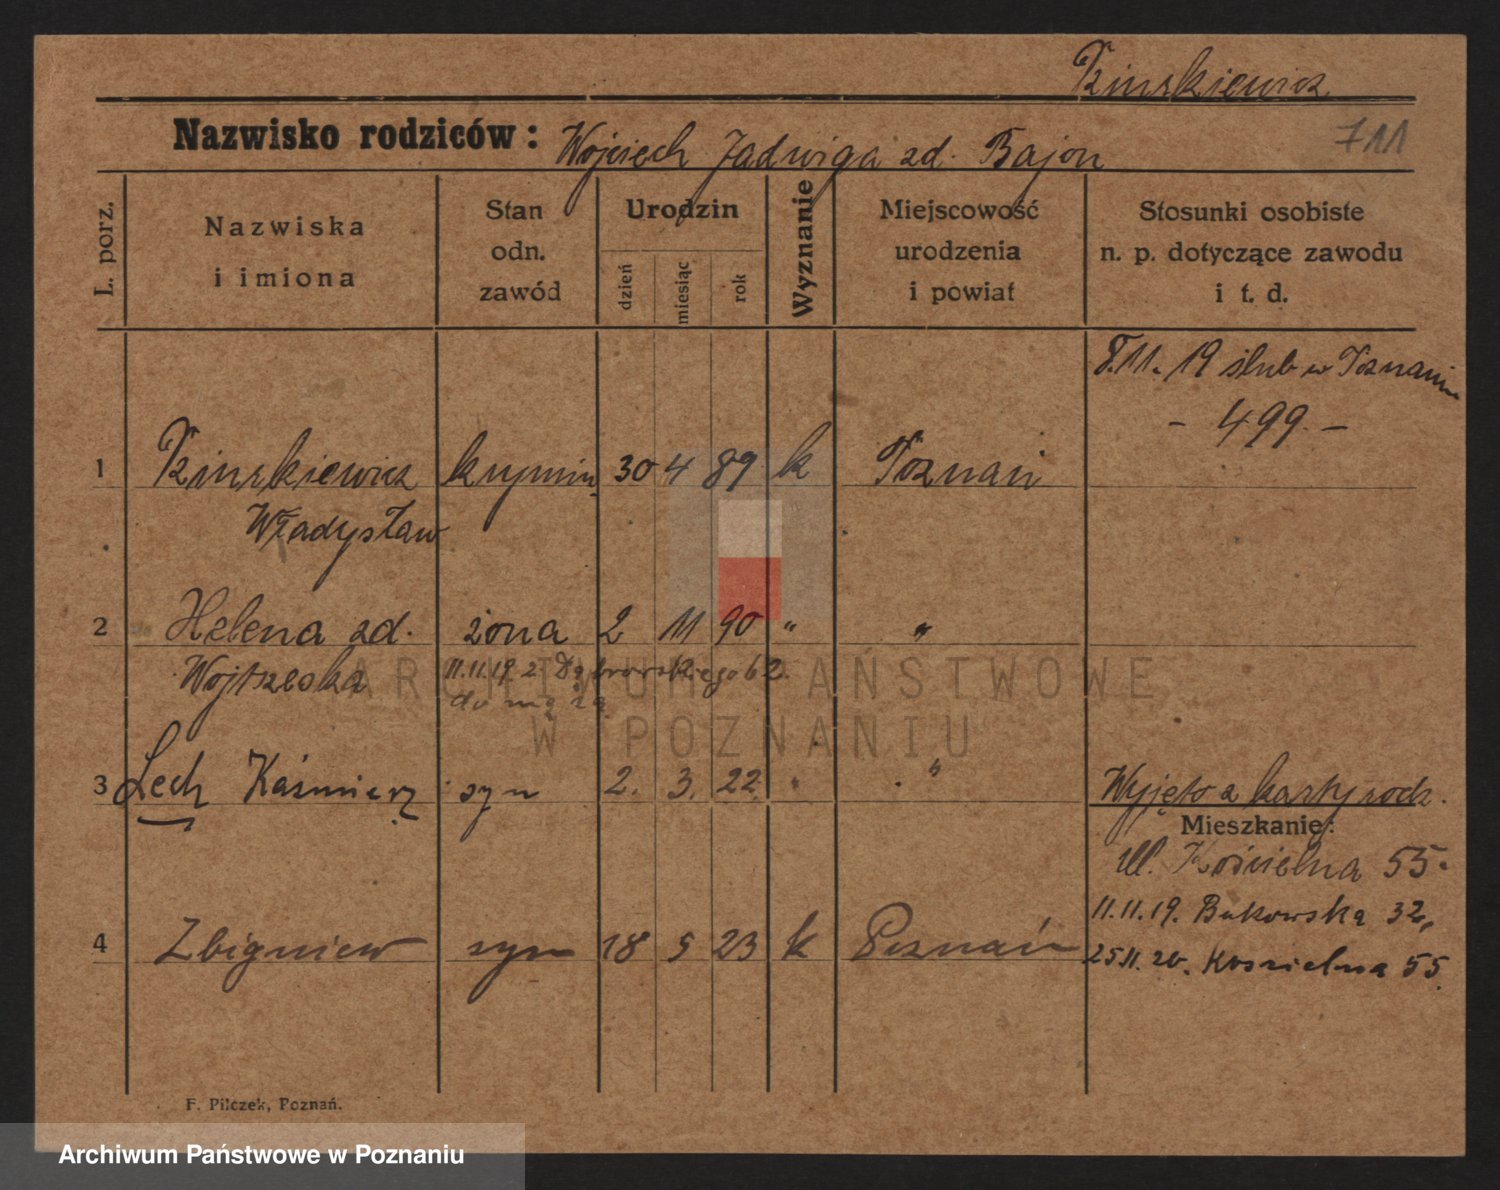 Rzinskiewicz
Nazwisko rodziców: Wojciech Jadwiga zd. Bajon
711
L. porz.
Nazwiska
i imiona
Stan
odn.
zawód
Urodzin
dzień
miesiąc
rok
Wyznanie
Miejscowość
urodzenia
i powiat
Stosunki osobiste
n. p. dotyczące zawodu
i t. d.
8.11.19 ślub w Poznaniu
- 499. -
1 Rzinskiewicz 30 4 89 k Poznań
Władysław
2 Helena zd. żona 2 11 90 " "
Wojtzecka
11.11.19. z Dąbrowskiego 62.
do męża
3 Lech Kaźmierz syn 2. 3. 22. " "
Wyjęto z karty rodz.
Mieszkanie:
ul. Kościelna 55.
11.11.19. Bukowska 32,
4 Zbigniew syn 18 5 23 k Poznań
25.11.20. Koscielna 55.
F. Pilczek, Poznań.
ARCHIWUM PAŃSTWOWE
W POZNANIU
Archiwum Państwowe w Poznaniu